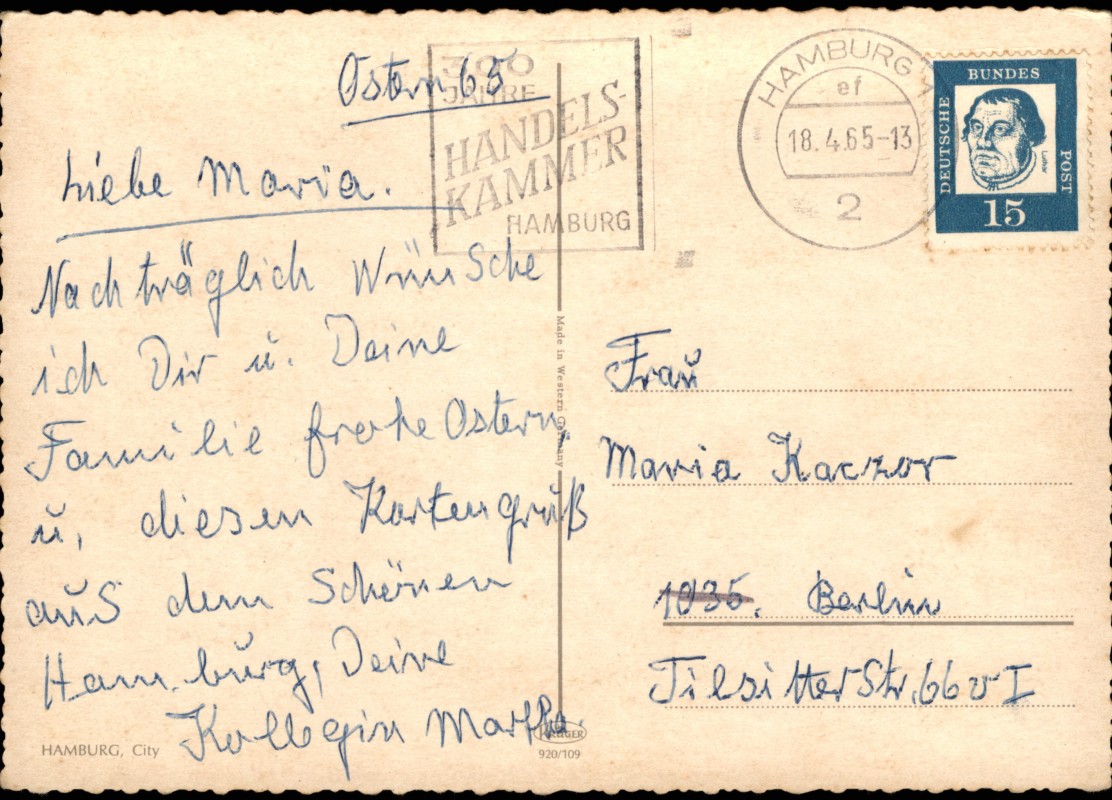 Ostern 65
300
JAHRE
HANDELS-
KAMMER
HAMBURG
HAMBURG
ef
18.4.65-13
2
DEUTSCHE
BUNDES
POST
Luther
15
Liebe Maria.
Nachträglich wünsche
ich Dir u. Deine
Familie frohe Ostern
u, diesen Kartengruß
aus dem Schönen
Hamburg, Deine
Kollegin Martha.
HAMBURG, City
Made in Western Germany
KRÜGER
920/109
Frau
Maria Kaczor
1035. Berlin
Tilsitter Str. 66 v I